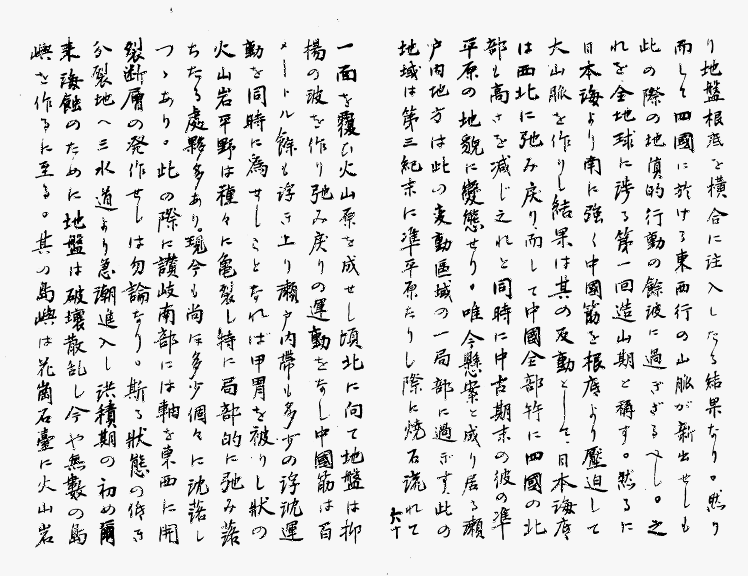 り地盤根底を横合に注入したる結果なり。然り
而して四國に於ける東西行の山脈が新出せしも
此の際の地質的行動の餘波に過ぎざるべし。之
れを全地球に渉る第一回造山期と稱す。然るに
日本海より南に強く中國筋を根底より壓迫して
大山脈を作りし結果は其の反動として日本海底
は西北に弛み戻り而して中國全部竝に四國の北
部も高さを減じ之れと同時に中古期末の彼の準
平原の地貌に變態せり。唯今懸案と成り居る瀬
戸内地方は此の変動區域の一局部に過ぎず此の
地域は第三紀末に準平原たりし際に焼石流れて
六十
一面を覆ひ火山原を成せし頃北に向て地盤は抑
揚の波を作り弛み戻りの運動をなし中國筋は百
メートル餘も浮き上り瀬戸内帯も多少の浮沈運
動を同時に為せしことなれば甲冑を被りし狀の
火山岩平野は種々に亀裂し特に局部的に弛み落
ちたる處夥多あり。現今も尚ほ多少個々に沈落し
つゝあり。此の際に讃岐南部には軸を東西に開
裂断層の発作せしは勿論なり。斯る狀態の低き
分裂地へ三水道より急潮進入し洪積期の初め爾
来海蝕のために地盤は破壊散乱し今や無數の島
嶼を作るに至る。其の島嶼は花崗石臺に火山岩